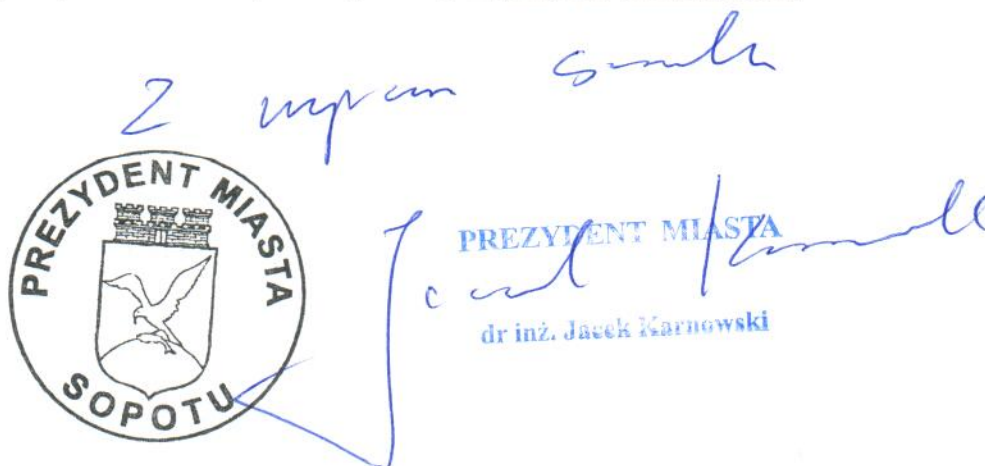 Z wyrazami szacunku
PREZYDENT MIASTA
SOPOTU
PREZYDENT MIASTA
Jacek Karnowski
dr inż. Jacek Karnowski